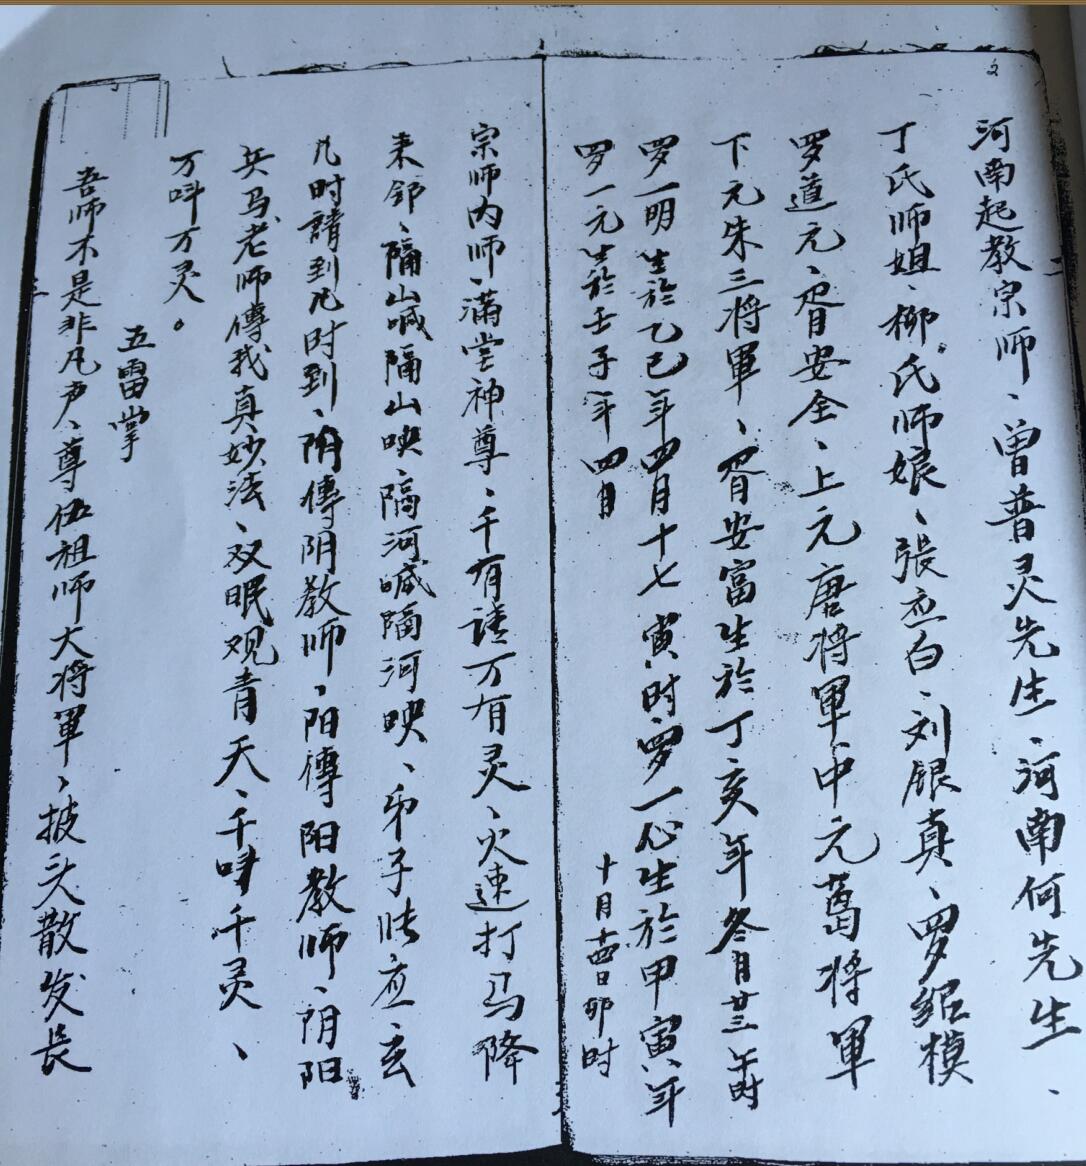 2
河南起教宗师、曾普灵先生、河南何先生、
丁氏师姐、柳氏师娘、張应白、刘银真、罗绍模
罗道元、胥安全、上元唐将軍中元葛将軍
下元朱三将軍、胥安富生於丁亥年冬月廿三午时
罗一明生於乙巳年四月十七寅时罗一心生於甲寅年
罗一元生於壬子年四月
十月十四日卯时
宗师内师、满堂神尊、千有请万有灵、火速打马降
来邻、隔山喊隔山映、隔河喊隔河映、弟子张应玄
凡时請到凡时到、阴傳阴教师、阳傳阳教师、阴阳
兵马、老师傳我真妙法、双眠观青天、千呌千灵、
万呌万灵。
五雷掌
吾师不是非凡声、尊伍祖师大将軍、披头散发长